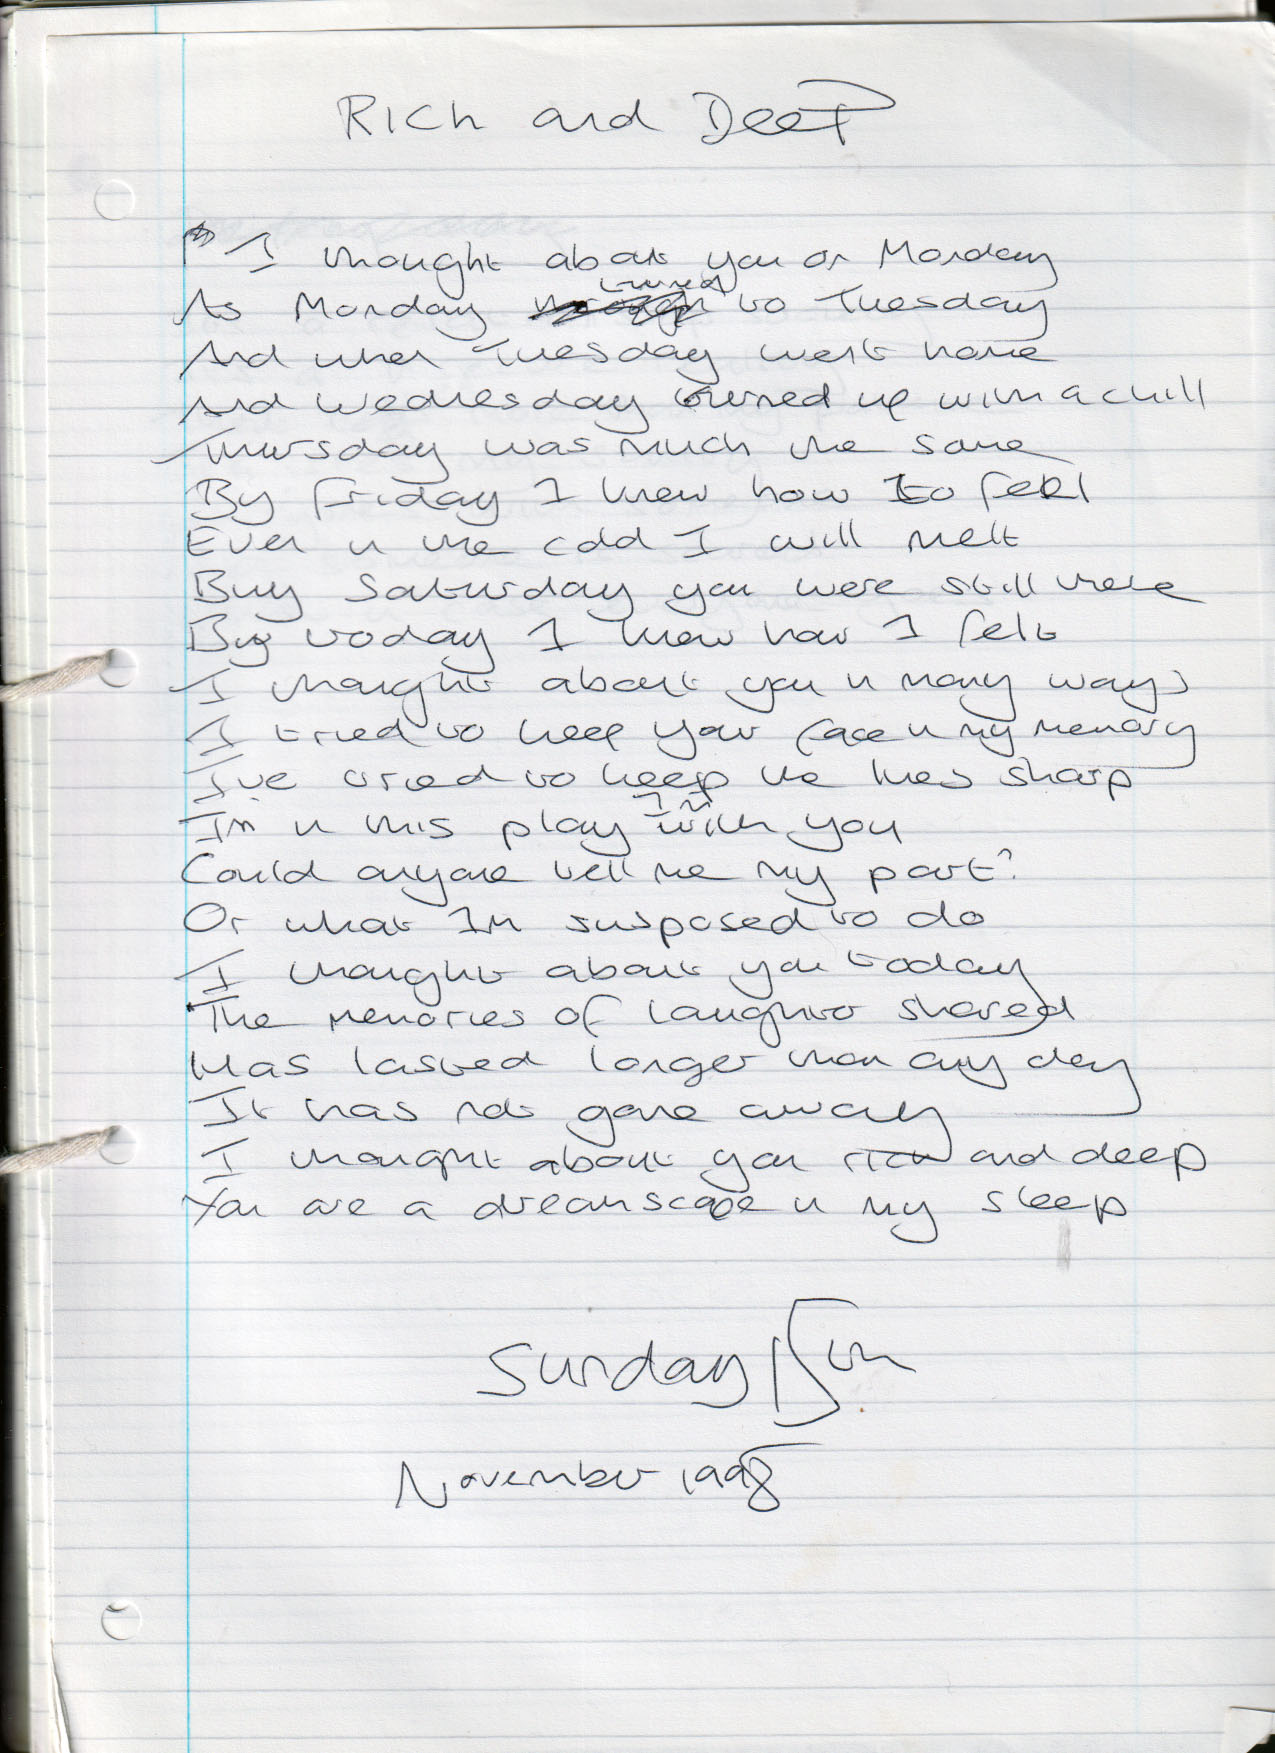 Rich and Deep
I thought about you on Monday
turned
As Monday to Tuesday
And when Tuesday went home
And Wednesday turned up with a chill
Thursday was much the same
By Friday I knew how to feel
Even in the cold I will melt
Buy Saturday you were still there
By today I know how I felt
I thought about you in many ways
I tried to keep your face in my memory
I've tried to keep the lines sharp
Im in this play with you
Could anyone tell me my part?
Or what Im susposed to do
I thought about you today
The memories of laughter shared
Has lasted longer than any day
It has not gone away
I thought about you rich and deep
You are a dreamscape in my sleep
Sunday
November 1998